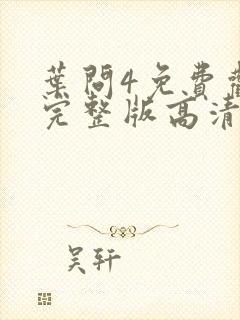 葉問4免費
完整版高清
吴轩